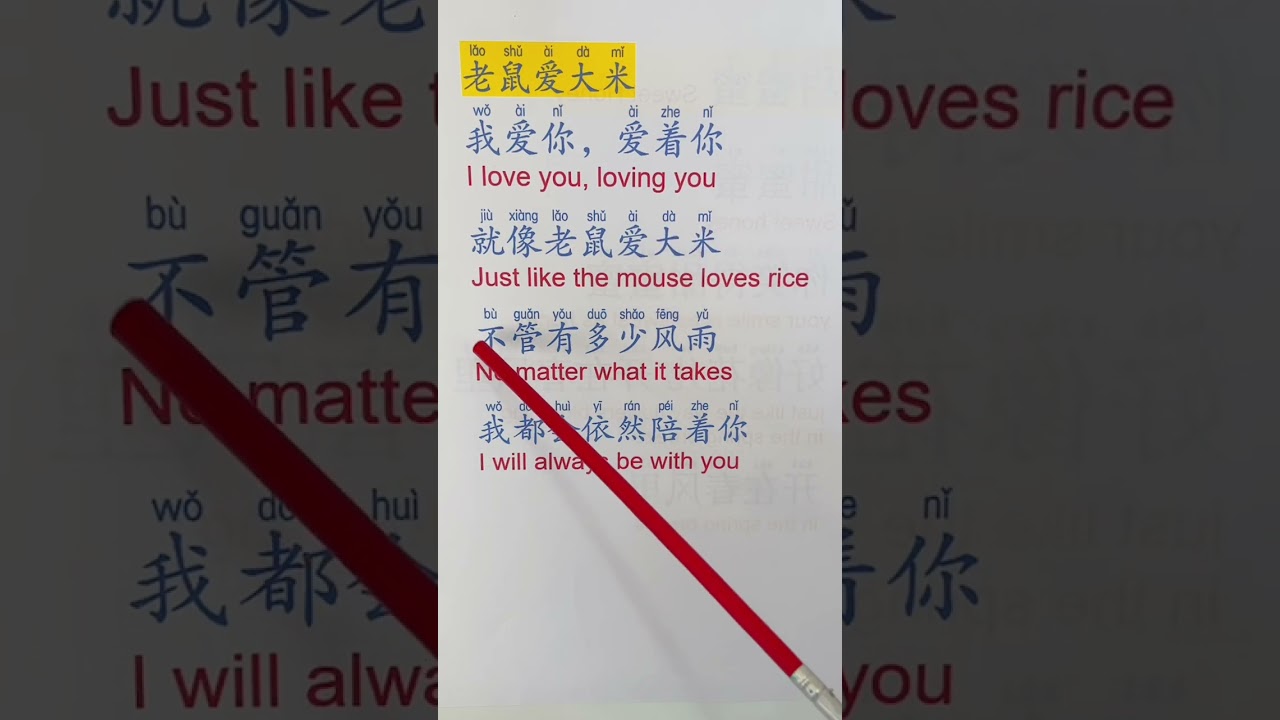 lǎo shǔ ài dà mǐ
老鼠爱大米
wǒ ài nǐ, ài zhe nǐ
我爱你，爱着你
I love you, loving you
jiù xiàng lǎo shǔ ài dà mǐ
就像老鼠爱大米
Just like the mouse loves rice
bù guǎn yǒu duō shǎo fēng yǔ
不管有多少风雨
No matter what it takes
wǒ huì yī rán péi zhe nǐ
我都会依然陪着你
I will always be with you